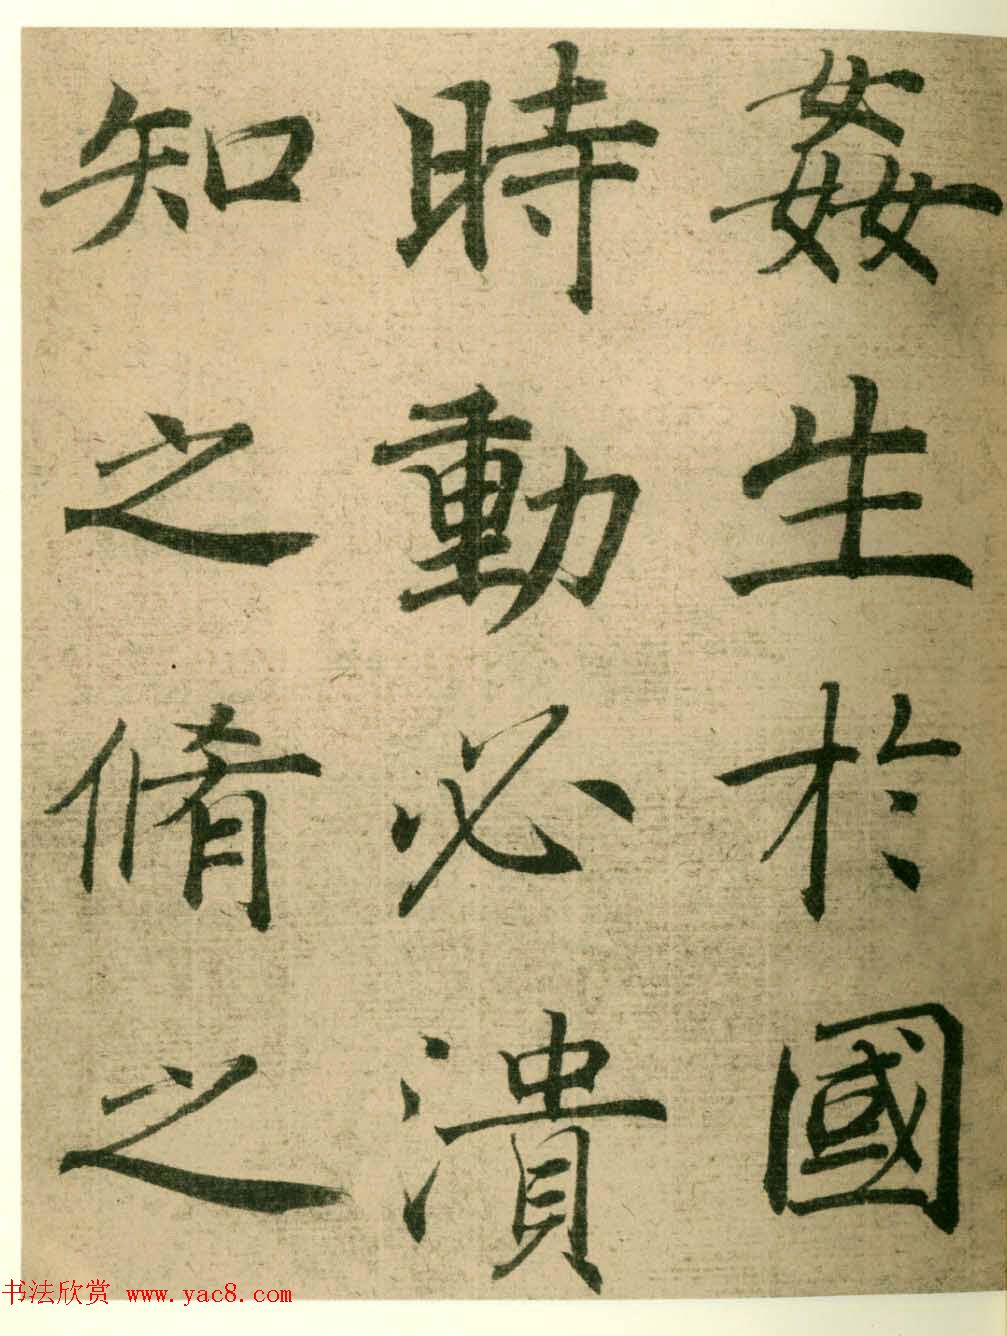 姦生於國
時動必潰
知之脩之
书法欣赏 www.yac8.com